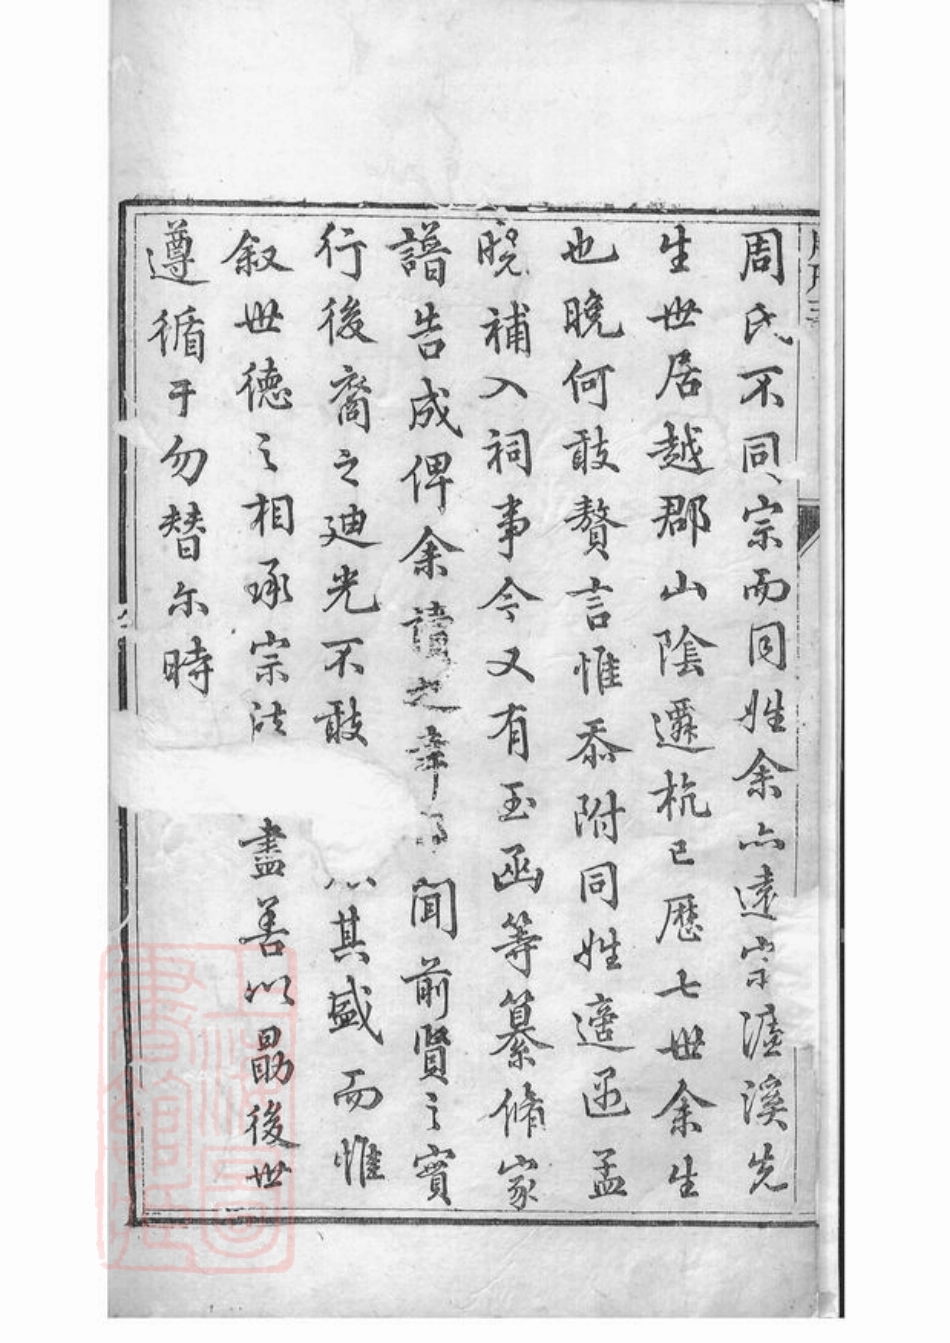 周氏不同宗而同姓余亦遠宗濂溪先
生世居越郡山陰遷杭已歷七世余生
也晚何敢贅言惟忝附同姓適逅孟
晥補入祠事今又有玉函等纂脩家
譜告成俾余讀之幸聞前賢之實
行後裔之廸光不敢其盛而惟
叙世德之相承宗法盡善以勗後世
遵循于勿替尓時
上海圖書館藏